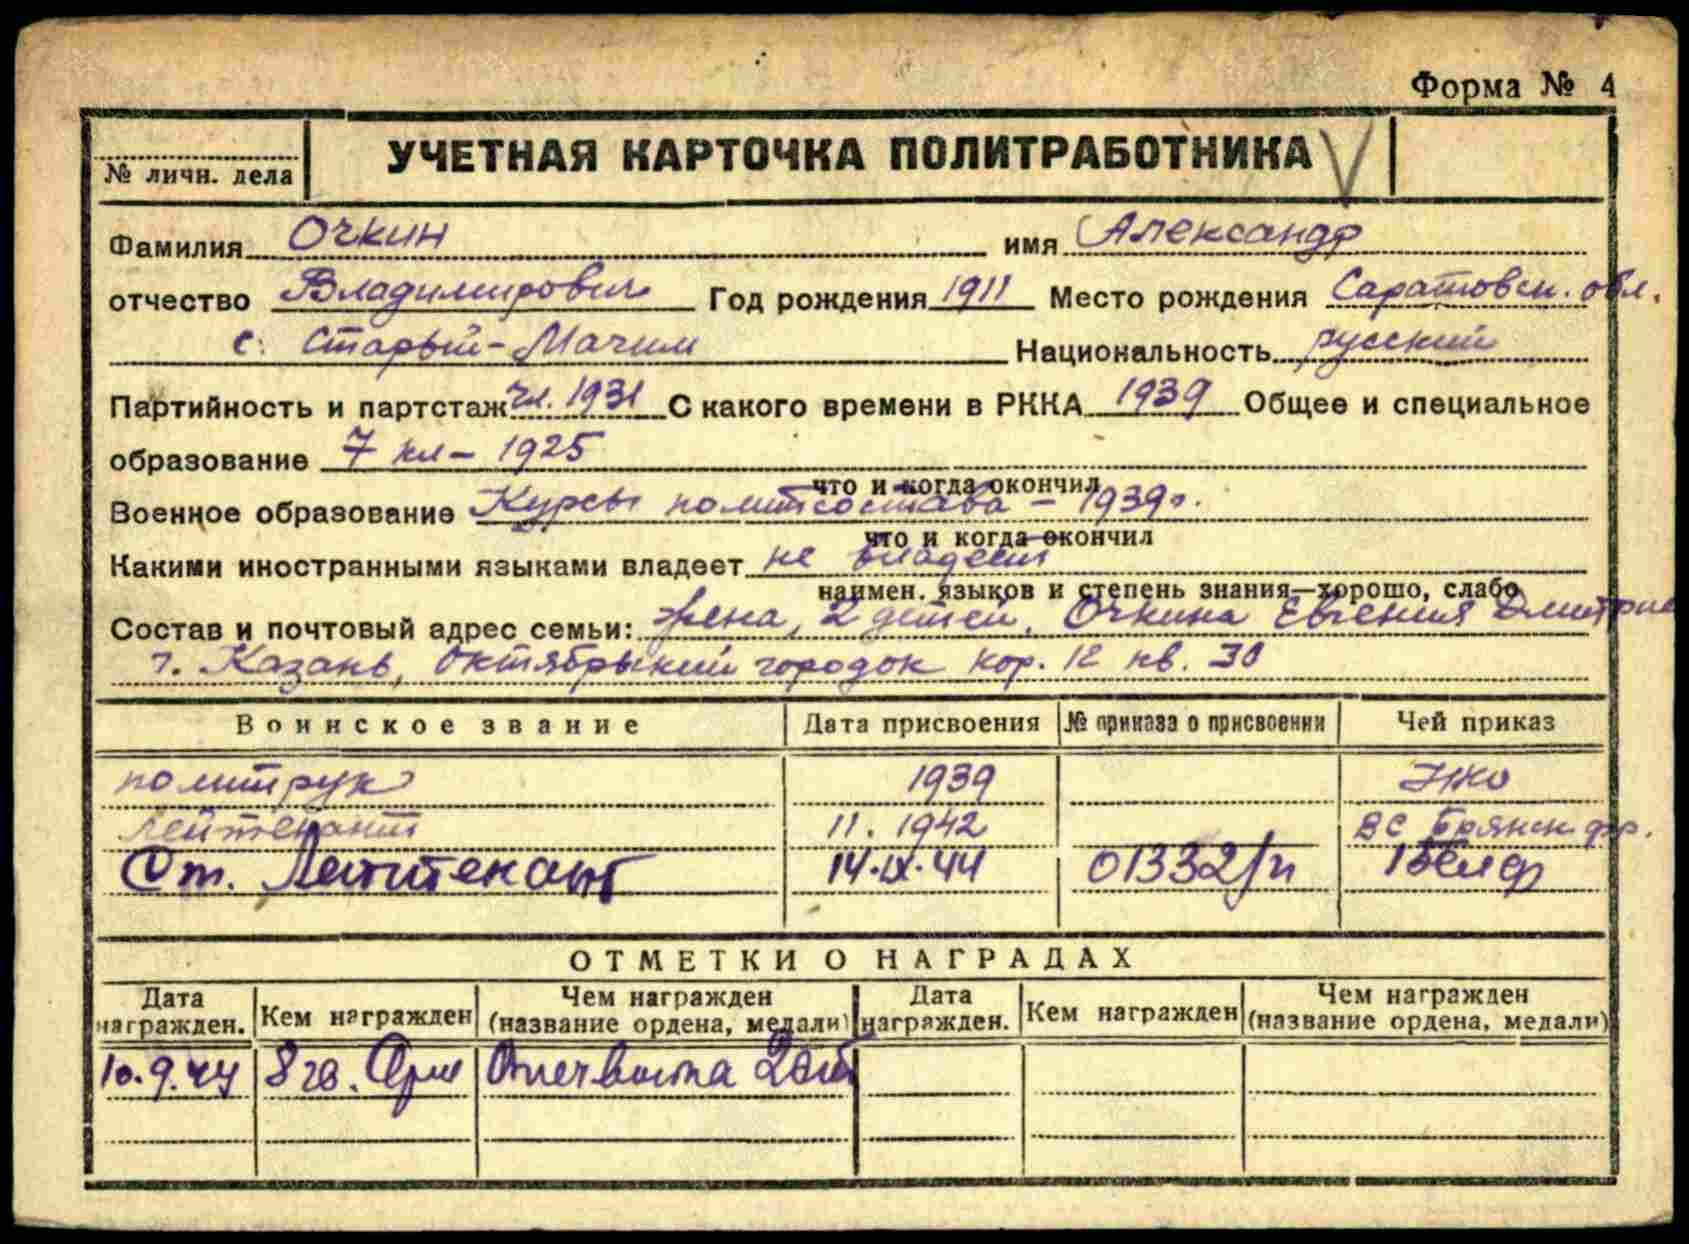 Форма № 4
№ личн. дела
УЧЕТНАЯ КАРТОЧКА ПОЛИТРАБОТНИКА
Фамилия Очкин имя Александр
отчество Владимирович Год рождения 1911 Место рождения Саратовск. обл.
с. Старый-Мачим Национальность русский
Партийность и партстаж чл. 1931 С какого времени в РККА 1939 Общее и специальное
образование 7 кл – 1925
что и когда окончил
Военное образование Курсы политсостава – 1939г.
что и когда окончил
Какими иностранными языками владеет не владеет
наимен. языков и степень знания—хорошо, слабо
Состав и почтовый адрес семьи: жена, 2 детей, Очкина Евгения Дмитрие
г. Казань, Октябрьский городок кор. 12 кв. 30
Воинское звание Дата присвоения № приказа о присвоении Чей приказ
политрук 1939 НКО
лейтенант 11. 1942 ВС Брянск фр.
Ст. Лейтенант 14.IX.44 01332/н 1Белф
ОТМЕТКИ О НАГРАДАХ
Дата награжден. Кем награжден Чем награжден (название ордена, медали) Дата награжден. Кем награжден Чем награжден (название ордена, медали)
10.9.44 8 гв. Арм Отечвойна 2ст